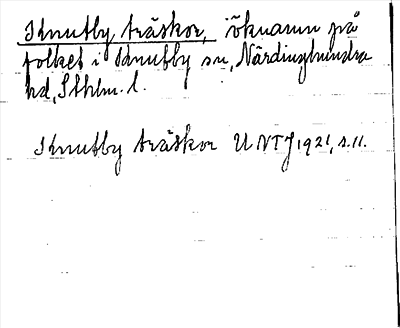 Knutby träskor, öknamn på
folket i Knutby sn, Närdinghundra
hd, Sthlm. l.
Knutby träskor UNTJ 1921, s. 11.